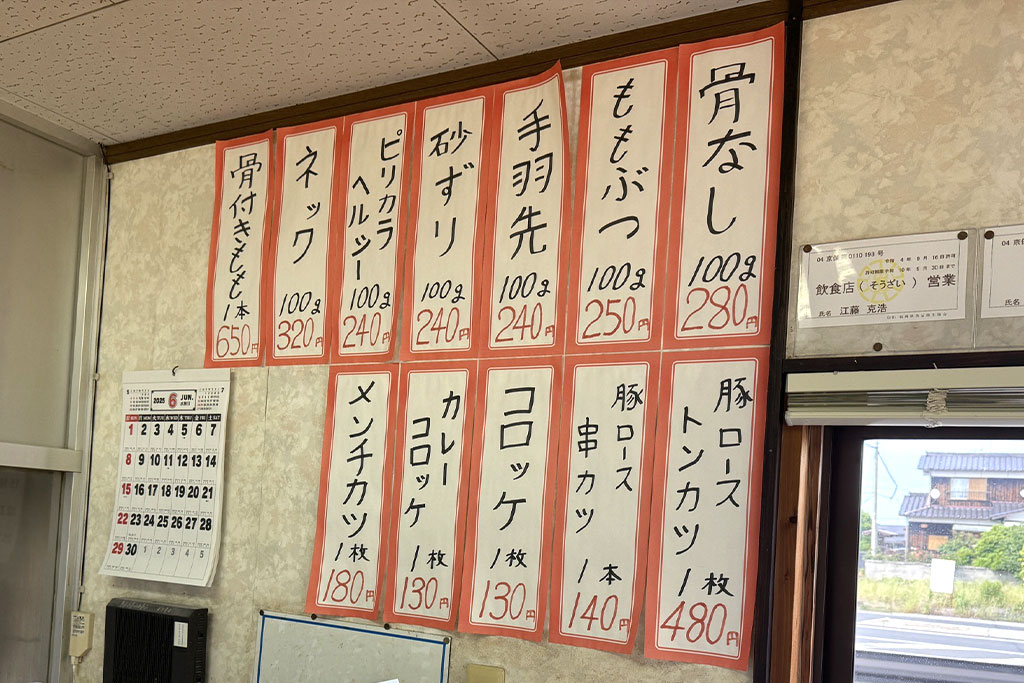 骨なし
100g
280円
ももぶつ
100g
250円
手羽先
100g
240円
砂ずり
100g
240円
ピリカラ
ヘルシー
100g
240円
ネック
100g
320円
骨付きもも
1本
650円
豚ロース
トンカツ
1枚
480円
豚ロース
串カツ
1本
140円
コロッケ
1枚
130円
カレー
コロッケ
1枚
130円
メンチカツ
1枚
180円
04 京保
飲食店(そうざい)営業
氏名 江藤 克浩
04 京保
氏名
2025 6 JUN.
1 2 3 4 5 6 7
8 9 10 11 12 13 14
15 16 17 18 19 20 21
22 23 24 25 26 27 28
29 30 1 2 3 4 5